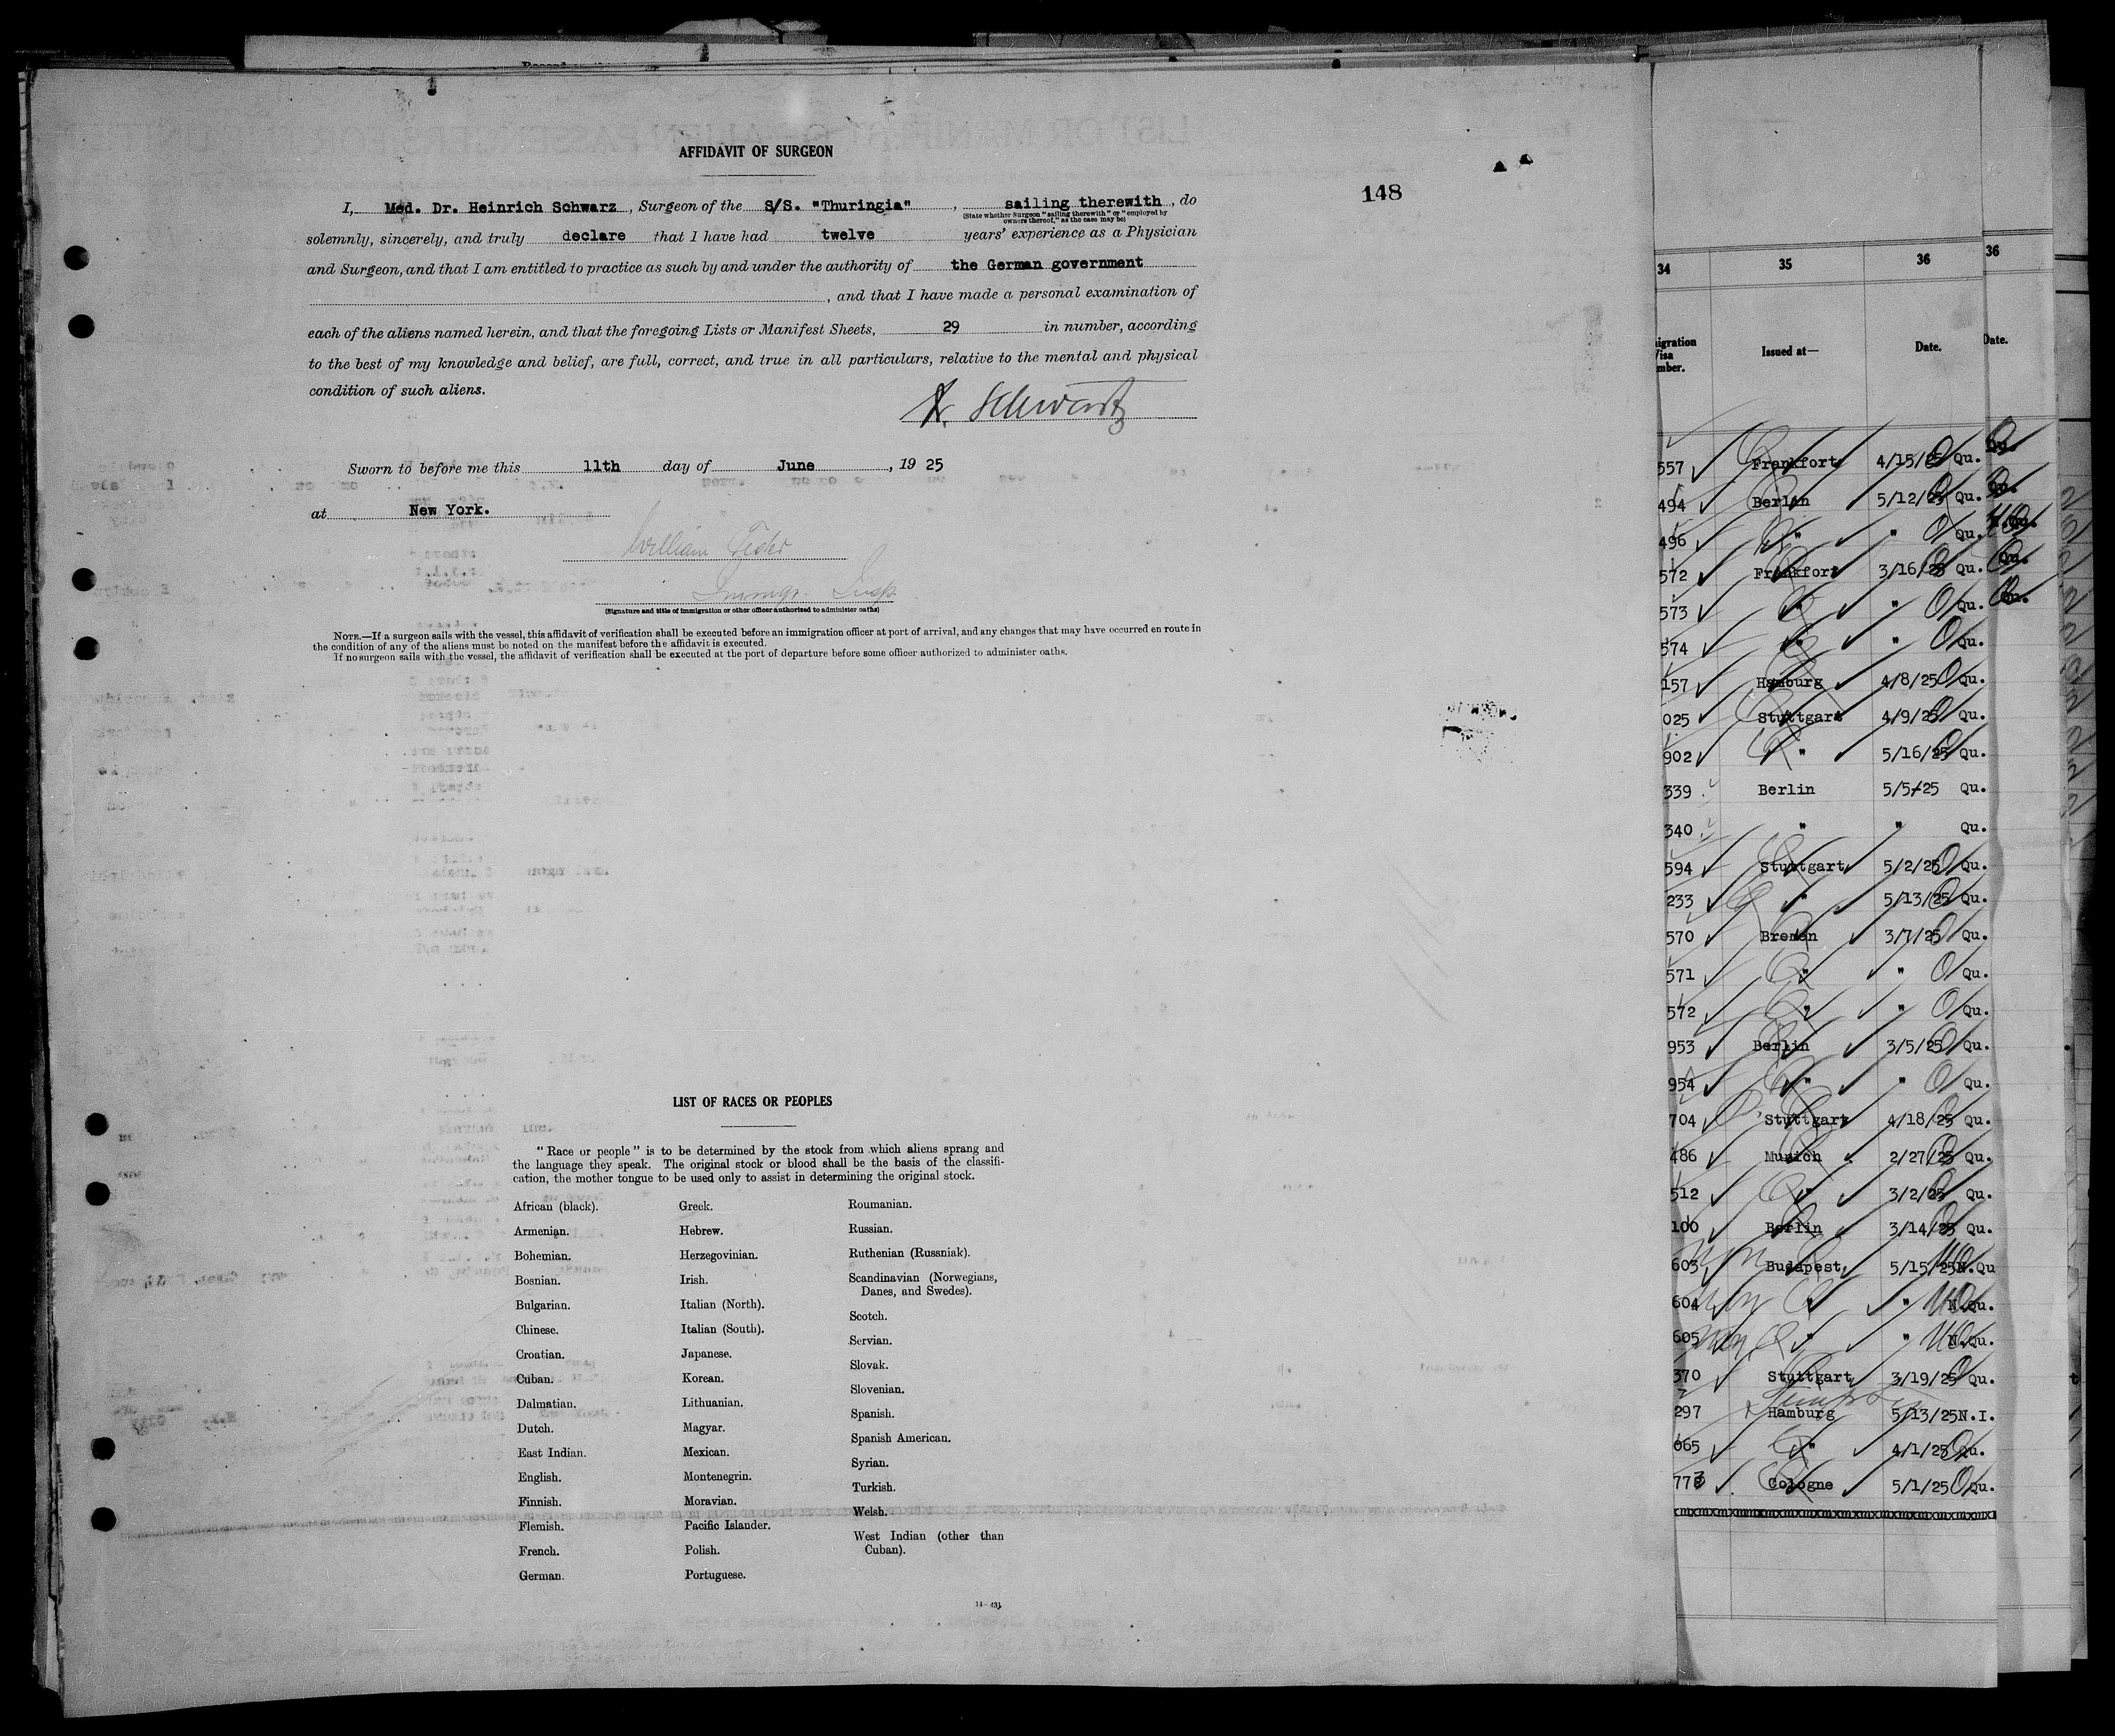 AFFIDAVIT OF SURGEON
148
I, Med. Dr. Heinrich Schwarz, Surgeon of the S/S. "Thuringia", sailing therewith, do
(State whether Surgeon "sailing therewith" or "employed by
owners thereof," as the case may be)
solemnly, sincerely, and truly declare that I have had twelve years' experience as a Physician
and Surgeon, and that I am entitled to practice as such by and under the authority of the German government
, and that I have made a personal examination of
each of the aliens named herein, and that the foregoing Lists or Manifest Sheets, 29 in number, according
to the best of my knowledge and belief, are full, correct, and true in all particulars, relative to the mental and physical
condition of such aliens.
Schwartz
Sworn to before me this 11th day of June, 1925
at New York.
William
Immigr. Insp.
(Signature and title of immigration or other officer authorized to administer oaths)
NOTE.—If a surgeon sails with the vessel, this affidavit of verification shall be executed before an immigration officer at port of arrival, and any changes that may have occurred en route in
the condition of any of the aliens must be noted on the manifest before the affidavit is executed.
If no surgeon sails with the vessel, the affidavit of verification shall be executed at the port of departure before some officer authorized to administer oaths.
LIST OF RACES OR PEOPLES
"Race or people" is to be determined by the stock from which aliens sprang and
the language they speak. The original stock or blood shall be the basis of the classifi-
cation, the mother tongue to be used only to assist in determining the original stock.
African (black).
Armenian.
Bohemian.
Bosnian.
Bulgarian.
Chinese.
Croatian.
Cuban.
Dalmatian.
Dutch.
East Indian.
English.
Finnish.
Flemish.
French.
German.
Greek.
Hebrew.
Herzegovinian.
Irish.
Italian (North).
Italian (South).
Japanese.
Korean.
Lithuanian.
Magyar.
Mexican.
Montenegrin.
Moravian.
Pacific Islander.
Polish.
Portuguese.
Roumanian.
Russian.
Ruthenian (Russniak).
Scandinavian (Norwegians,
Danes, and Swedes).
Scotch.
Servian.
Slovak.
Slovenian.
Spanish.
Spanish American.
Syrian.
Turkish.
Welsh.
West Indian (other than
Cuban).
34 35 36 36
igration
Visa
mber.
Issued at— Date. Date.
557 Frankfort 4/15/25 Qu. Qu.
494 Berlin 5/12/25 Qu. Qu.
496 " " Qu. Qu.
572 Frankfort 3/16/25 Qu. Qu.
573 " " Qu. Qu.
574 " " Qu.
157 Hamburg 4/8/25 Qu.
025 Stuttgart 4/9/25 Qu.
902 " 5/16/25 Qu.
339 Berlin 5/5/25 Qu.
340 " " Qu.
594 Stuttgart 5/2/25 Qu.
233 " 5/13/25 Qu.
570 Bremen 3/7/25 Qu.
571 " " Qu.
572 " " Qu.
953 Berlin 3/5/25 Qu.
954 " " Qu.
704 Stuttgart 4/18/25 Qu.
486 Munich 2/27/25 Qu.
512 " 3/2/25 Qu.
100 Berlin 3/14/25 Qu.
603 Budapest 5/15/25 N.Qu
604 " " N.Qu.
605 " " N.Qu.
370 Stuttgart 3/19/25 Qu.
297 Hamburg 5/13/25 N.I.
065 " 4/1/25 Qu.
773 Cologne 5/1/25 Qu.